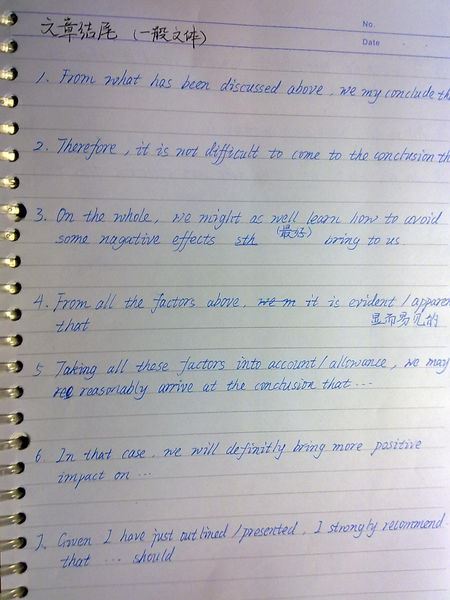 文章结尾 (一般文体)
No.
Date
1. From what has been discussed above, we my conclude th
2. Therefore, it is not difficult to come to the conclusion th
3. On the whole, we might as well learn how to avoid
(最好)
some nagative effects sth bring to us
4. From all the factors above, we m it is evident / apparen
that 显而易见的
5 Taking all these factors into account / allowance, we may
reasonably arrive at the conclusion that ...
6. In that case, we will definitly bring more positive
impact on ...
7. Given I have just outlined / presented, I strongly recommend
that ... should